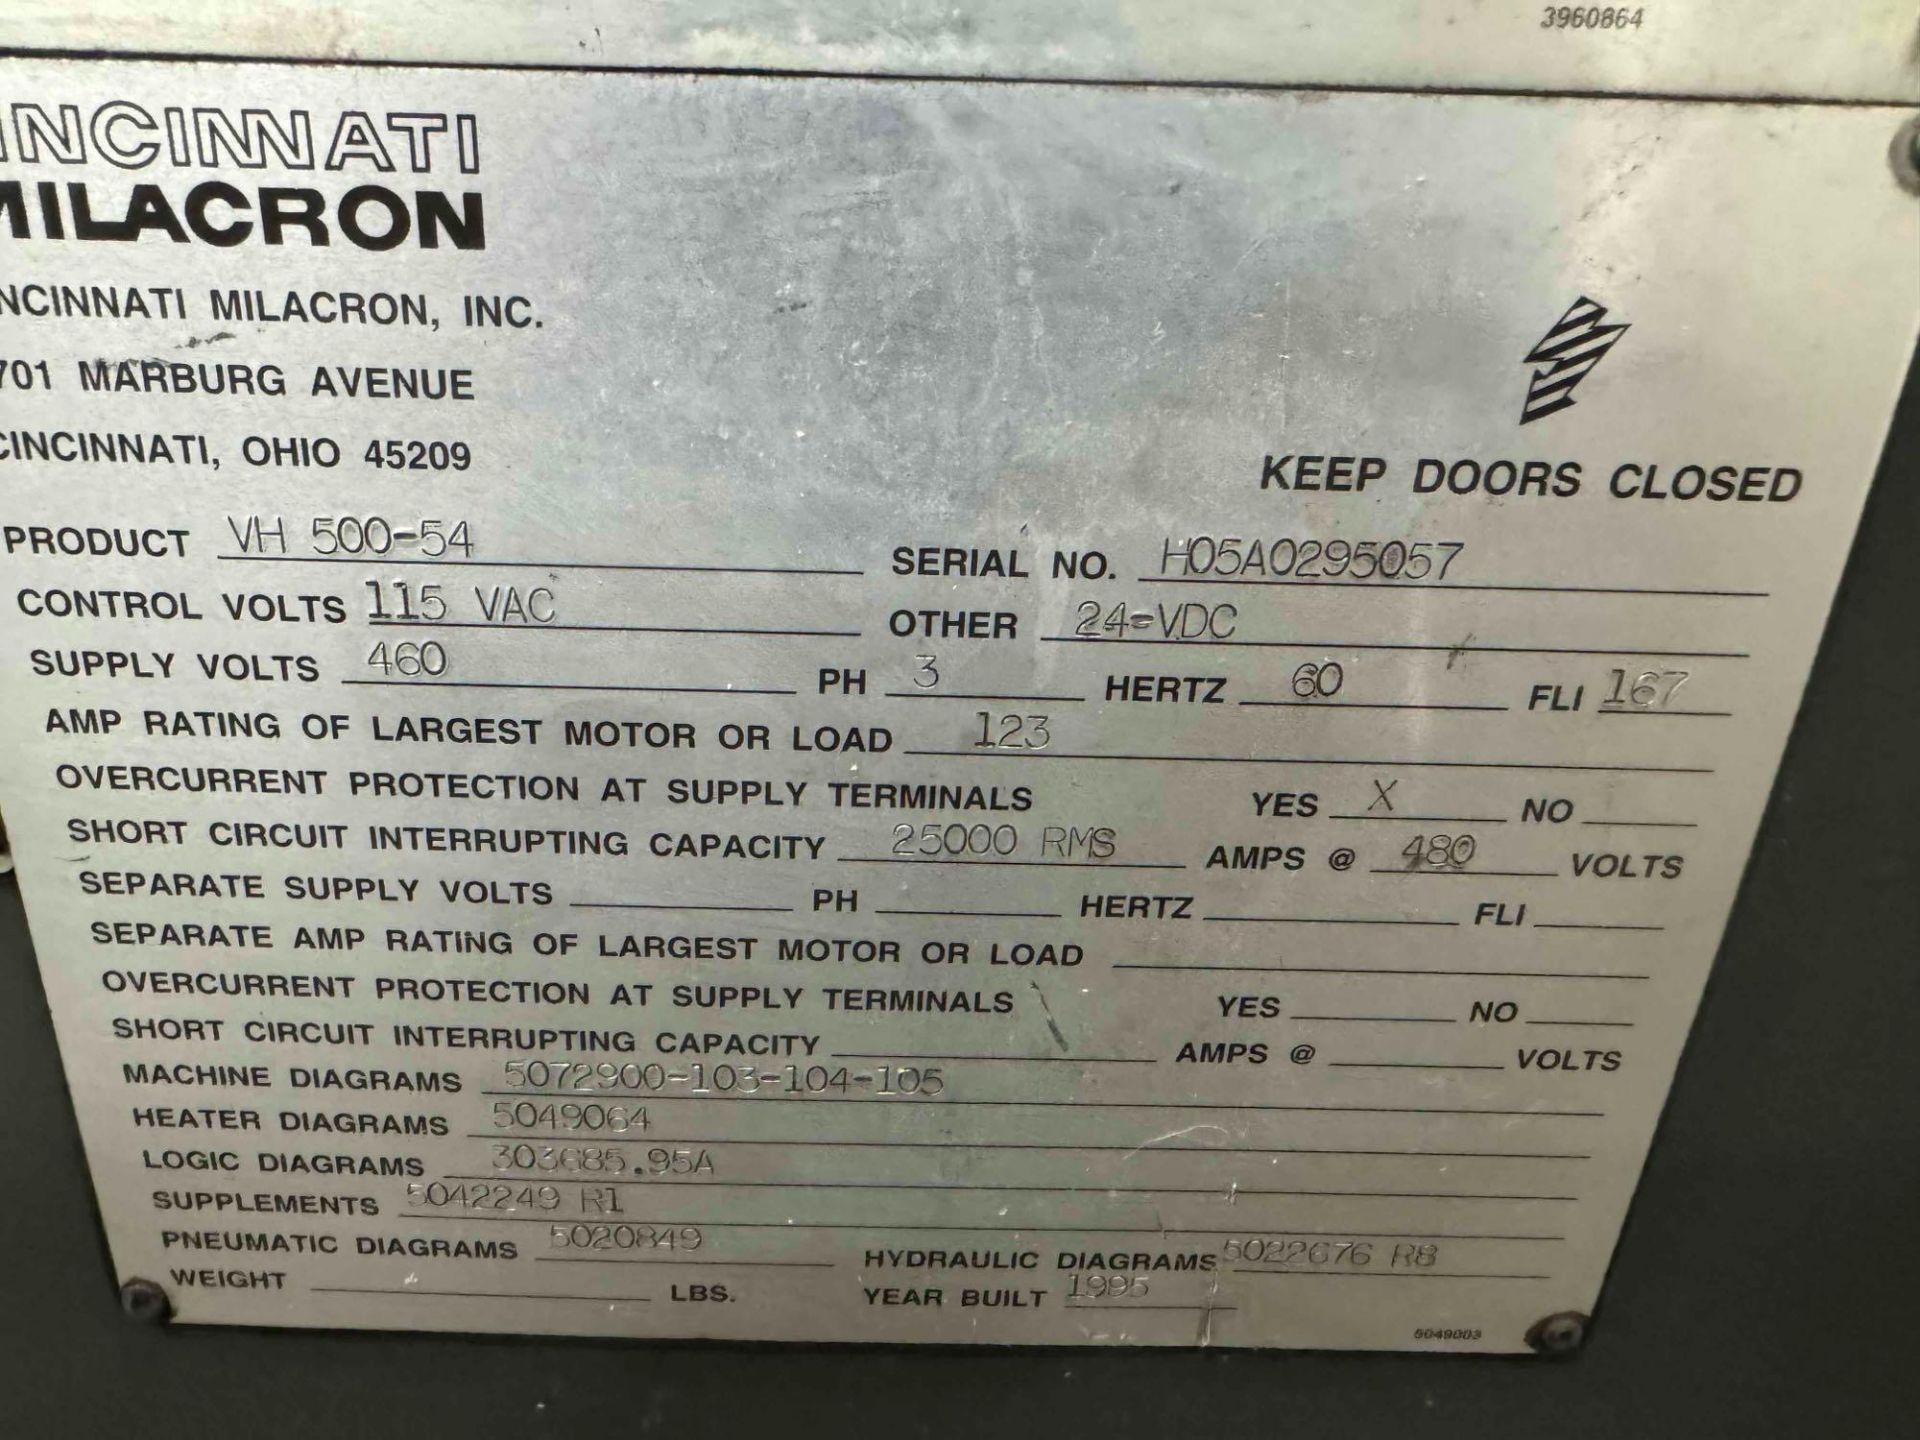 3960864
INCINNATI
MILACRON
NCINNATI MILACRON, INC.
701 MARBURG AVENUE
CINCINNATI, OHIO 45209
KEEP DOORS CLOSED
PRODUCT VH 500-54 SERIAL NO. H05A0295057
CONTROL VOLTS 115 VAC OTHER 24=VDC
SUPPLY VOLTS 460 PH 3 HERTZ 60 FLI 167
AMP RATING OF LARGEST MOTOR OR LOAD 123
OVERCURRENT PROTECTION AT SUPPLY TERMINALS YES X NO
SHORT CIRCUIT INTERRUPTING CAPACITY 25000 RMS AMPS @ 480 VOLTS
SEPARATE SUPPLY VOLTS PH HERTZ FLI
SEPARATE AMP RATING OF LARGEST MOTOR OR LOAD
OVERCURRENT PROTECTION AT SUPPLY TERMINALS YES NO
SHORT CIRCUIT INTERRUPTING CAPACITY AMPS @ VOLTS
MACHINE DIAGRAMS 5072900-103-104-105
HEATER DIAGRAMS 5049064
LOGIC DIAGRAMS 303685.95A
SUPPLEMENTS 5042249 R1
PNEUMATIC DIAGRAMS 5020849 HYDRAULIC DIAGRAMS 5022676 R8
WEIGHT LBS. YEAR BUILT 1995
5049003